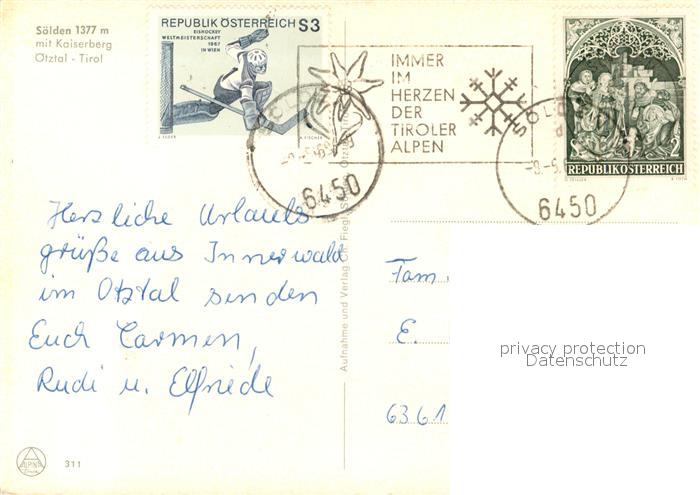 Sölden 1377 m
mit Kaiserberg
Ötztal - Tirol
REPUBLIK ÖSTERREICH S3
EISHOCKEY
WELTMEISTERSCHAFT
1967
IN WIEN
IMMER
IM
HERZEN
DER
TIROLER
ALPEN
SÖLDEN
6450
SÖLD
6450
2
REPUBLIK ÖSTERREICH
Herzliche Urlaubs
grüße aus Innerwald
im Ötztal senden
Euch Carmen,
Rudi u. Elfriede
Fam.
E.
6361
Aufnahme und Verlag Ch. Fiegl
privacy protection
Datenschutz
311